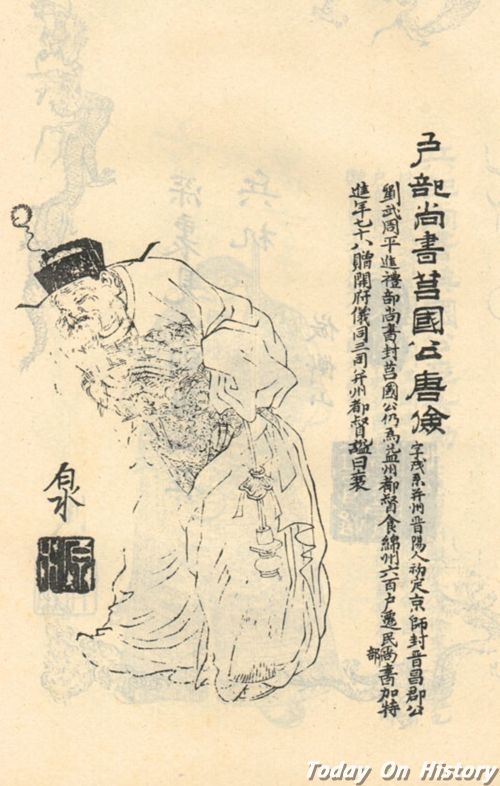 戶部尚書莒國公唐儉
字茂系并州晉陽人初定京師封晉昌郡公
劉武周平進禮部尚書封莒國公仍為益州都督食綿州六百戶遷民部尚書加特
進年七十八贈開府儀同三司并州都督謚曰襄
泉
Today On History